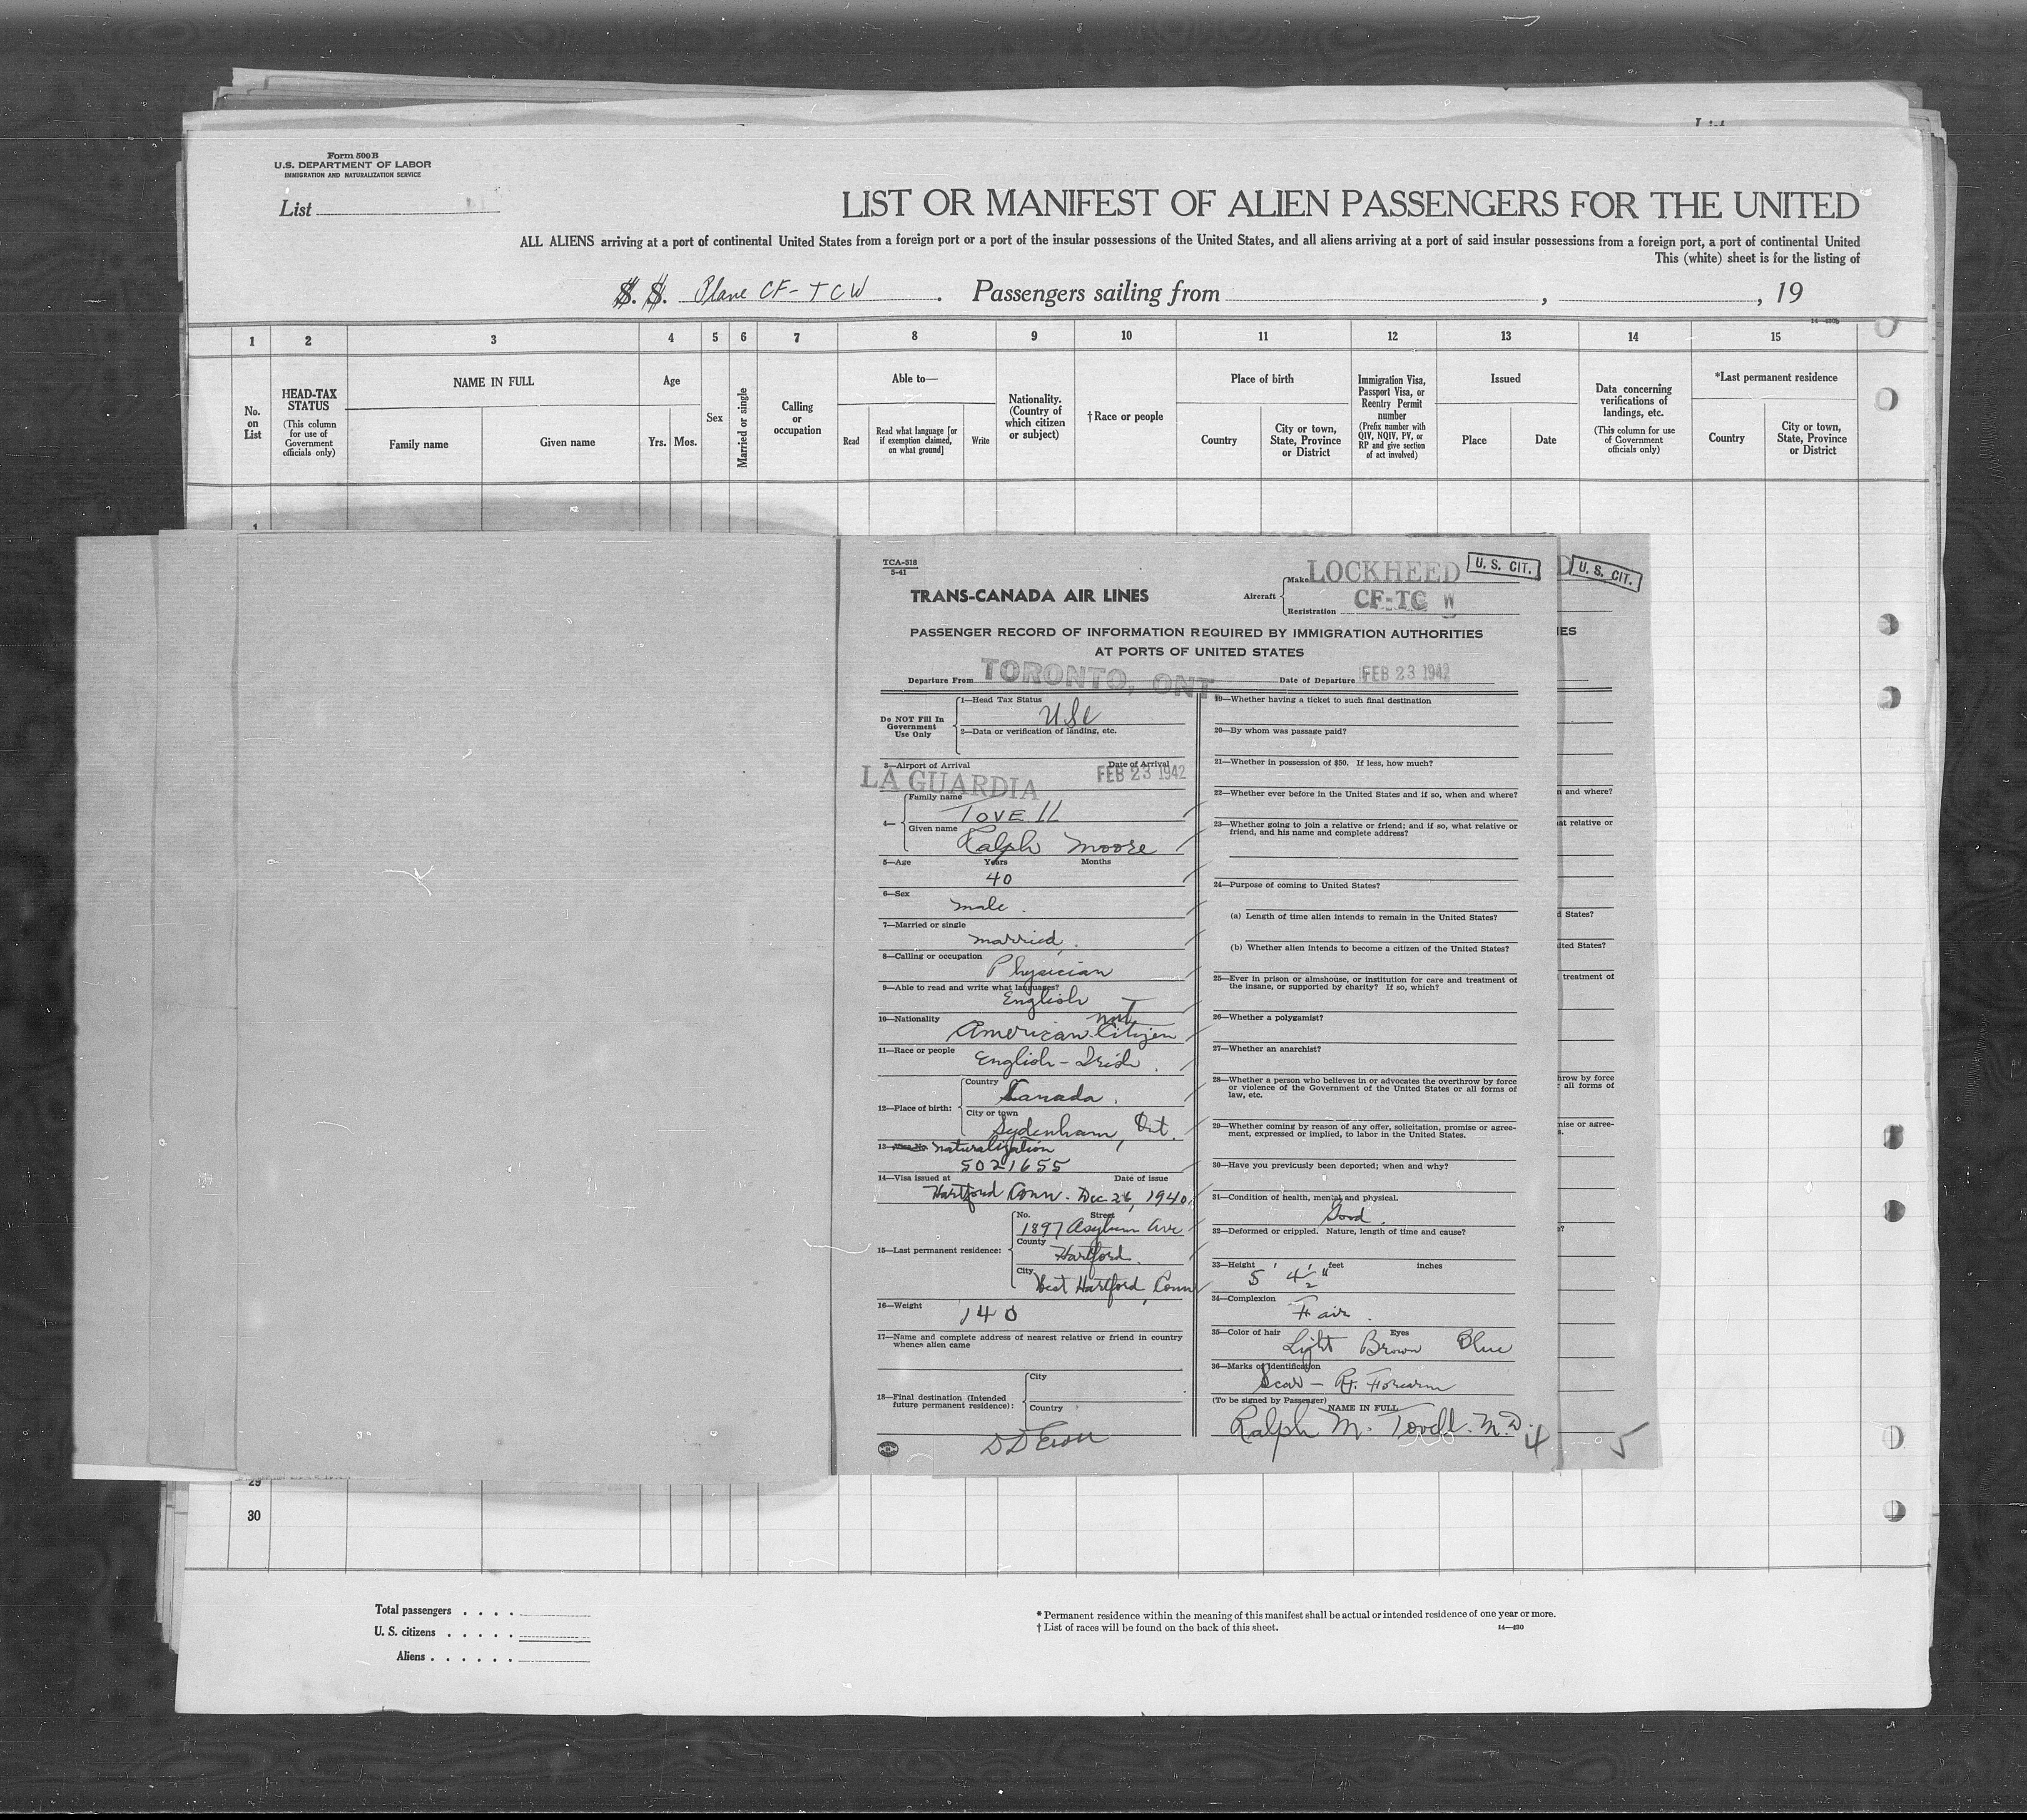 Form 500B
U.S. DEPARTMENT OF LABOR
IMMIGRATION AND NATURALIZATION SERVICE
List
LIST OR MANIFEST OF ALIEN PASSENGERS FOR THE UNITED
ALL ALIENS arriving at a port of continental United States from a foreign port or a port of the insular possessions of the United States, and all aliens arriving at a port of said insular possessions from a foreign port, a port of continental United
This (white) sheet is for the listing of
S. S. Plane CF-TCW. Passengers sailing from , , 19
1 2 3 4 5 6 7 8 9 10 11 12 13 14 15
No. on List
HEAD-TAX STATUS
(This column for use of Government officials only)
NAME IN FULL
Family name
Given name
Age
Yrs. Mos.
Sex
Married or single
Calling or occupation
Able to—
Read
Read what language [or if exemption claimed, on what ground]
Write
Nationality. (Country of which citizen or subject)
†Race or people
Place of birth
Country
City or town, State, Province or District
Immigration Visa, Passport Visa, or Reentry Permit number
(Prefix number with QIV, NQIV, PV, or RP and give section of act involved)
Issued
Place
Date
Data concerning verifications of landings, etc.
(This column for use of Government officials only)
*Last permanent residence
Country
City or town, State, Province or District
1
TCA-518
5-41
TRANS-CANADA AIR LINES
Aircraft
Make LOCKHEED
Registration CF-TC W
U. S. CIT.
U. S. CIT.
PASSENGER RECORD OF INFORMATION REQUIRED BY IMMIGRATION AUTHORITIES
AT PORTS OF UNITED STATES
Departure From TORONTO, ONT Date of Departure FEB 23 1942
Do NOT Fill In Government Use Only
1—Head Tax Status
USC
2—Data or verification of landing, etc.
3—Airport of Arrival Date of Arrival
LA GUARDIA FEB 23 1942
4—
Family name
Tovell
Given name
Ralph Moore
5—Age Years Months
40
6—Sex
male.
7—Married or single
married.
8—Calling or occupation
Physician
9—Able to read and write what languages?
English
10—Nationality
nat
American Citizen
11—Race or people
English-Irish.
12—Place of birth:
Country
Canada.
City or town
Sydenham, Ont.
13—Visa No. naturalization
5021655
14—Visa issued at Date of issue
Hartford Conn. Dec 26, 1940.
15—Last permanent residence:
No. Street
1897 Asylum Ave
County
Hartford.
City
West Hartford, Conn
16—Weight
140
17—Name and complete address of nearest relative or friend in country
whence alien came
18—Final destination (Intended
future permanent residence):
City
Country
19—Whether having a ticket to such final destination
20—By whom was passage paid?
21—Whether in possession of $50. If less, how much?
22—Whether ever before in the United States and if so, when and where?
23—Whether going to join a relative or friend; and if so, what relative or
friend, and his name and complete address?
24—Purpose of coming to United States?
(a) Length of time alien intends to remain in the United States?
(b) Whether alien intends to become a citizen of the United States?
25—Ever in prison or almshouse, or institution for care and treatment of
the insane, or supported by charity? If so, which?
26—Whether a polygamist?
27—Whether an anarchist?
28—Whether a person who believes in or advocates the overthrow by force
or violence of the Government of the United States or all forms of
law, etc.
29—Whether coming by reason of any offer, solicitation, promise or agree-
ment, expressed or implied, to labor in the United States.
30—Have you previously been deported; when and why?
31—Condition of health, mental and physical.
Good.
32—Deformed or crippled. Nature, length of time and cause?
33—Height feet inches
5' 4½"
34—Complexion
Fair.
35—Color of hair Eyes
Light Brown Blue
36—Marks of Identification
Scar — Rt. Forearm
(To be signed by Passenger)
NAME IN FULL
Ralph M. Tovell. M.D.
4
5
IES
n and where?
at relative or
d States?
ited States?
treatment of
hrow by force
all forms of
mise or agree-
29
30
Total passengers
U. S. citizens
Aliens
* Permanent residence within the meaning of this manifest shall be actual or intended residence of one year or more.
† List of races will be found on the back of this sheet.
14—430